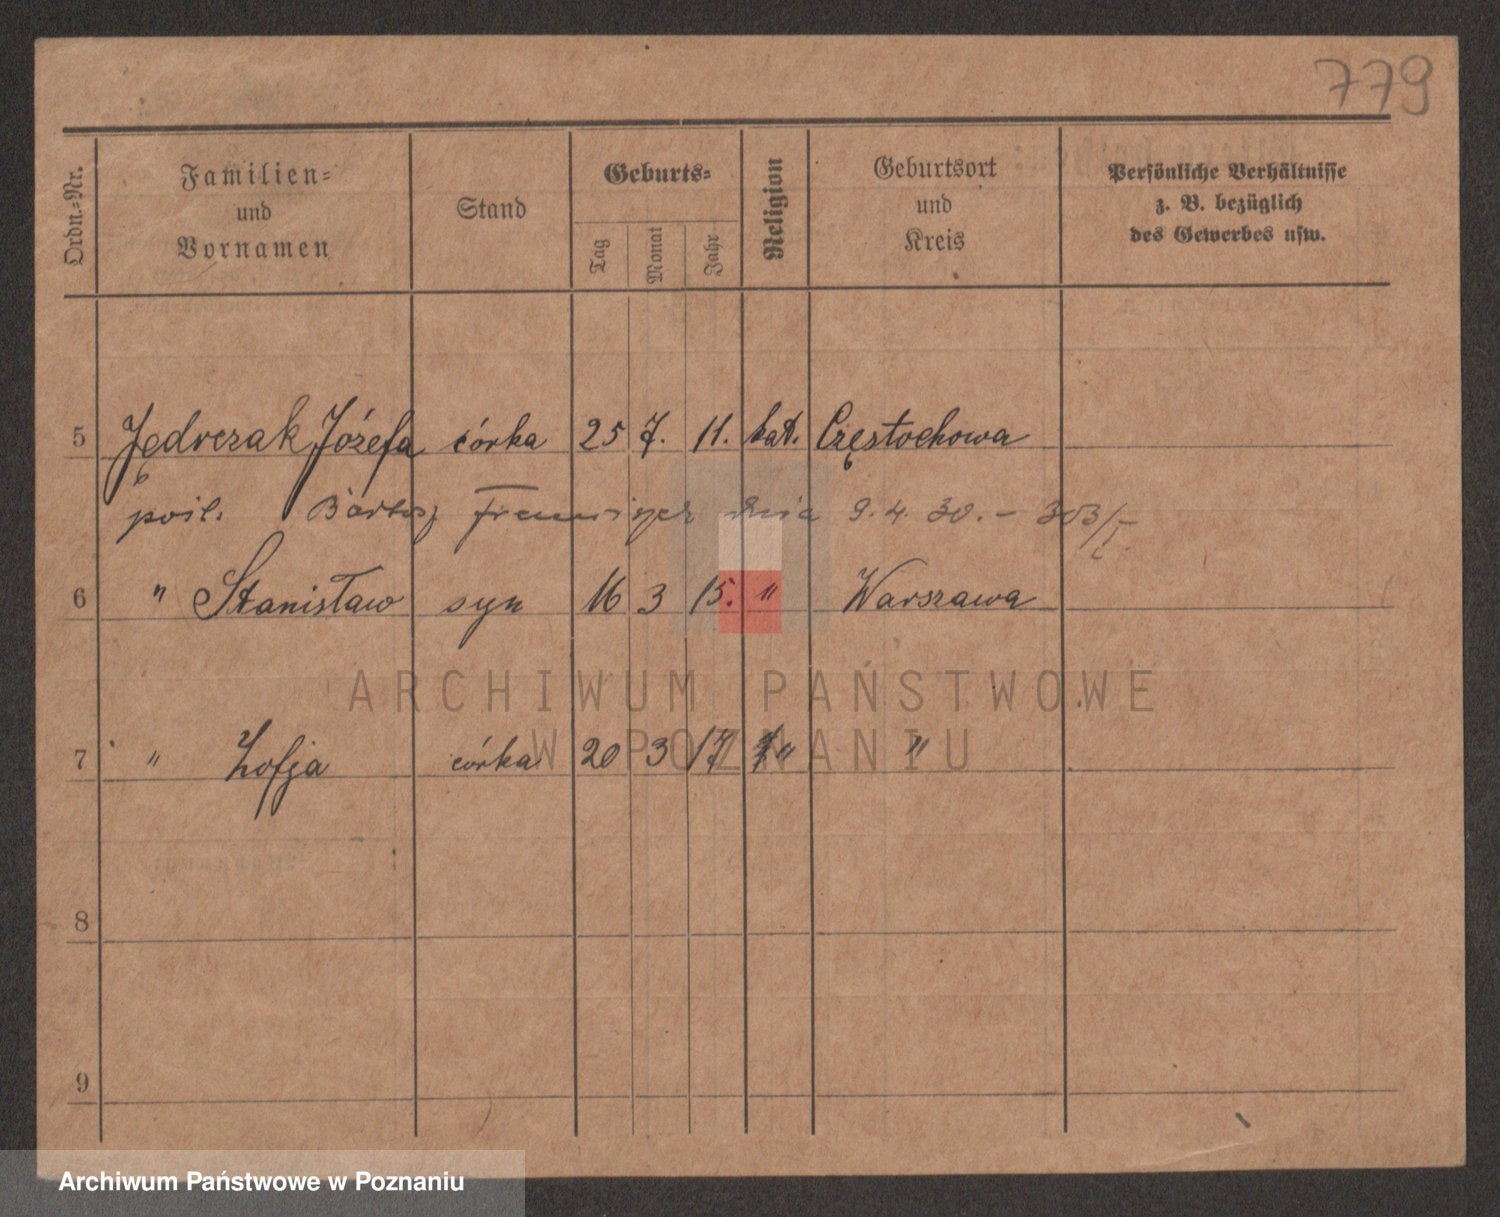 779
Ordn.-Nr.
Familien-
und
Vornamen
Stand
Geburts-
Tag Monat Jahr
Religion
Geburtsort
und
Kreis
Persönliche Verhältnisse
z. B. bezüglich
des Gewerbes usw.
5 Jędrczak Józefa córka 25 7. 11. kat. Częstochowa
Bartosz dnia 9.4.30. – 303/I
6 " Stanisław syn 16 3 15. " Warszawa
ARCHIWUM PAŃSTWOWE
W POZNANIU
7 " Zofja córka 20 3 17 " "
8
9
Archiwum Państwowe w Poznaniu